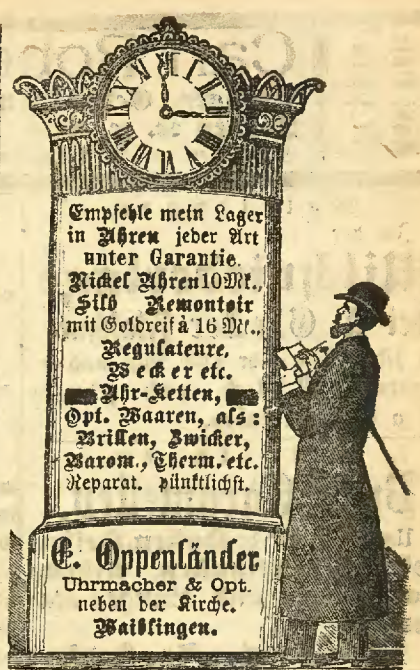 Empfehle mein Lager
in Uhren jeder Art
unter Garantie.
Nickel Uhren 10 Mk.,
Silb Remontoir
mit Goldreif à 16 Mk.,
Regulateure,
Wecker etc.
Uhr-Ketten,
Opt. Waaren, als:
Brillen, Zwicker,
Barom., Therm. etc.
Reparat. pünktlichst.
E. Oppenländer
Uhrmacher & Opt.
neben der Kirche.
Waiblingen.